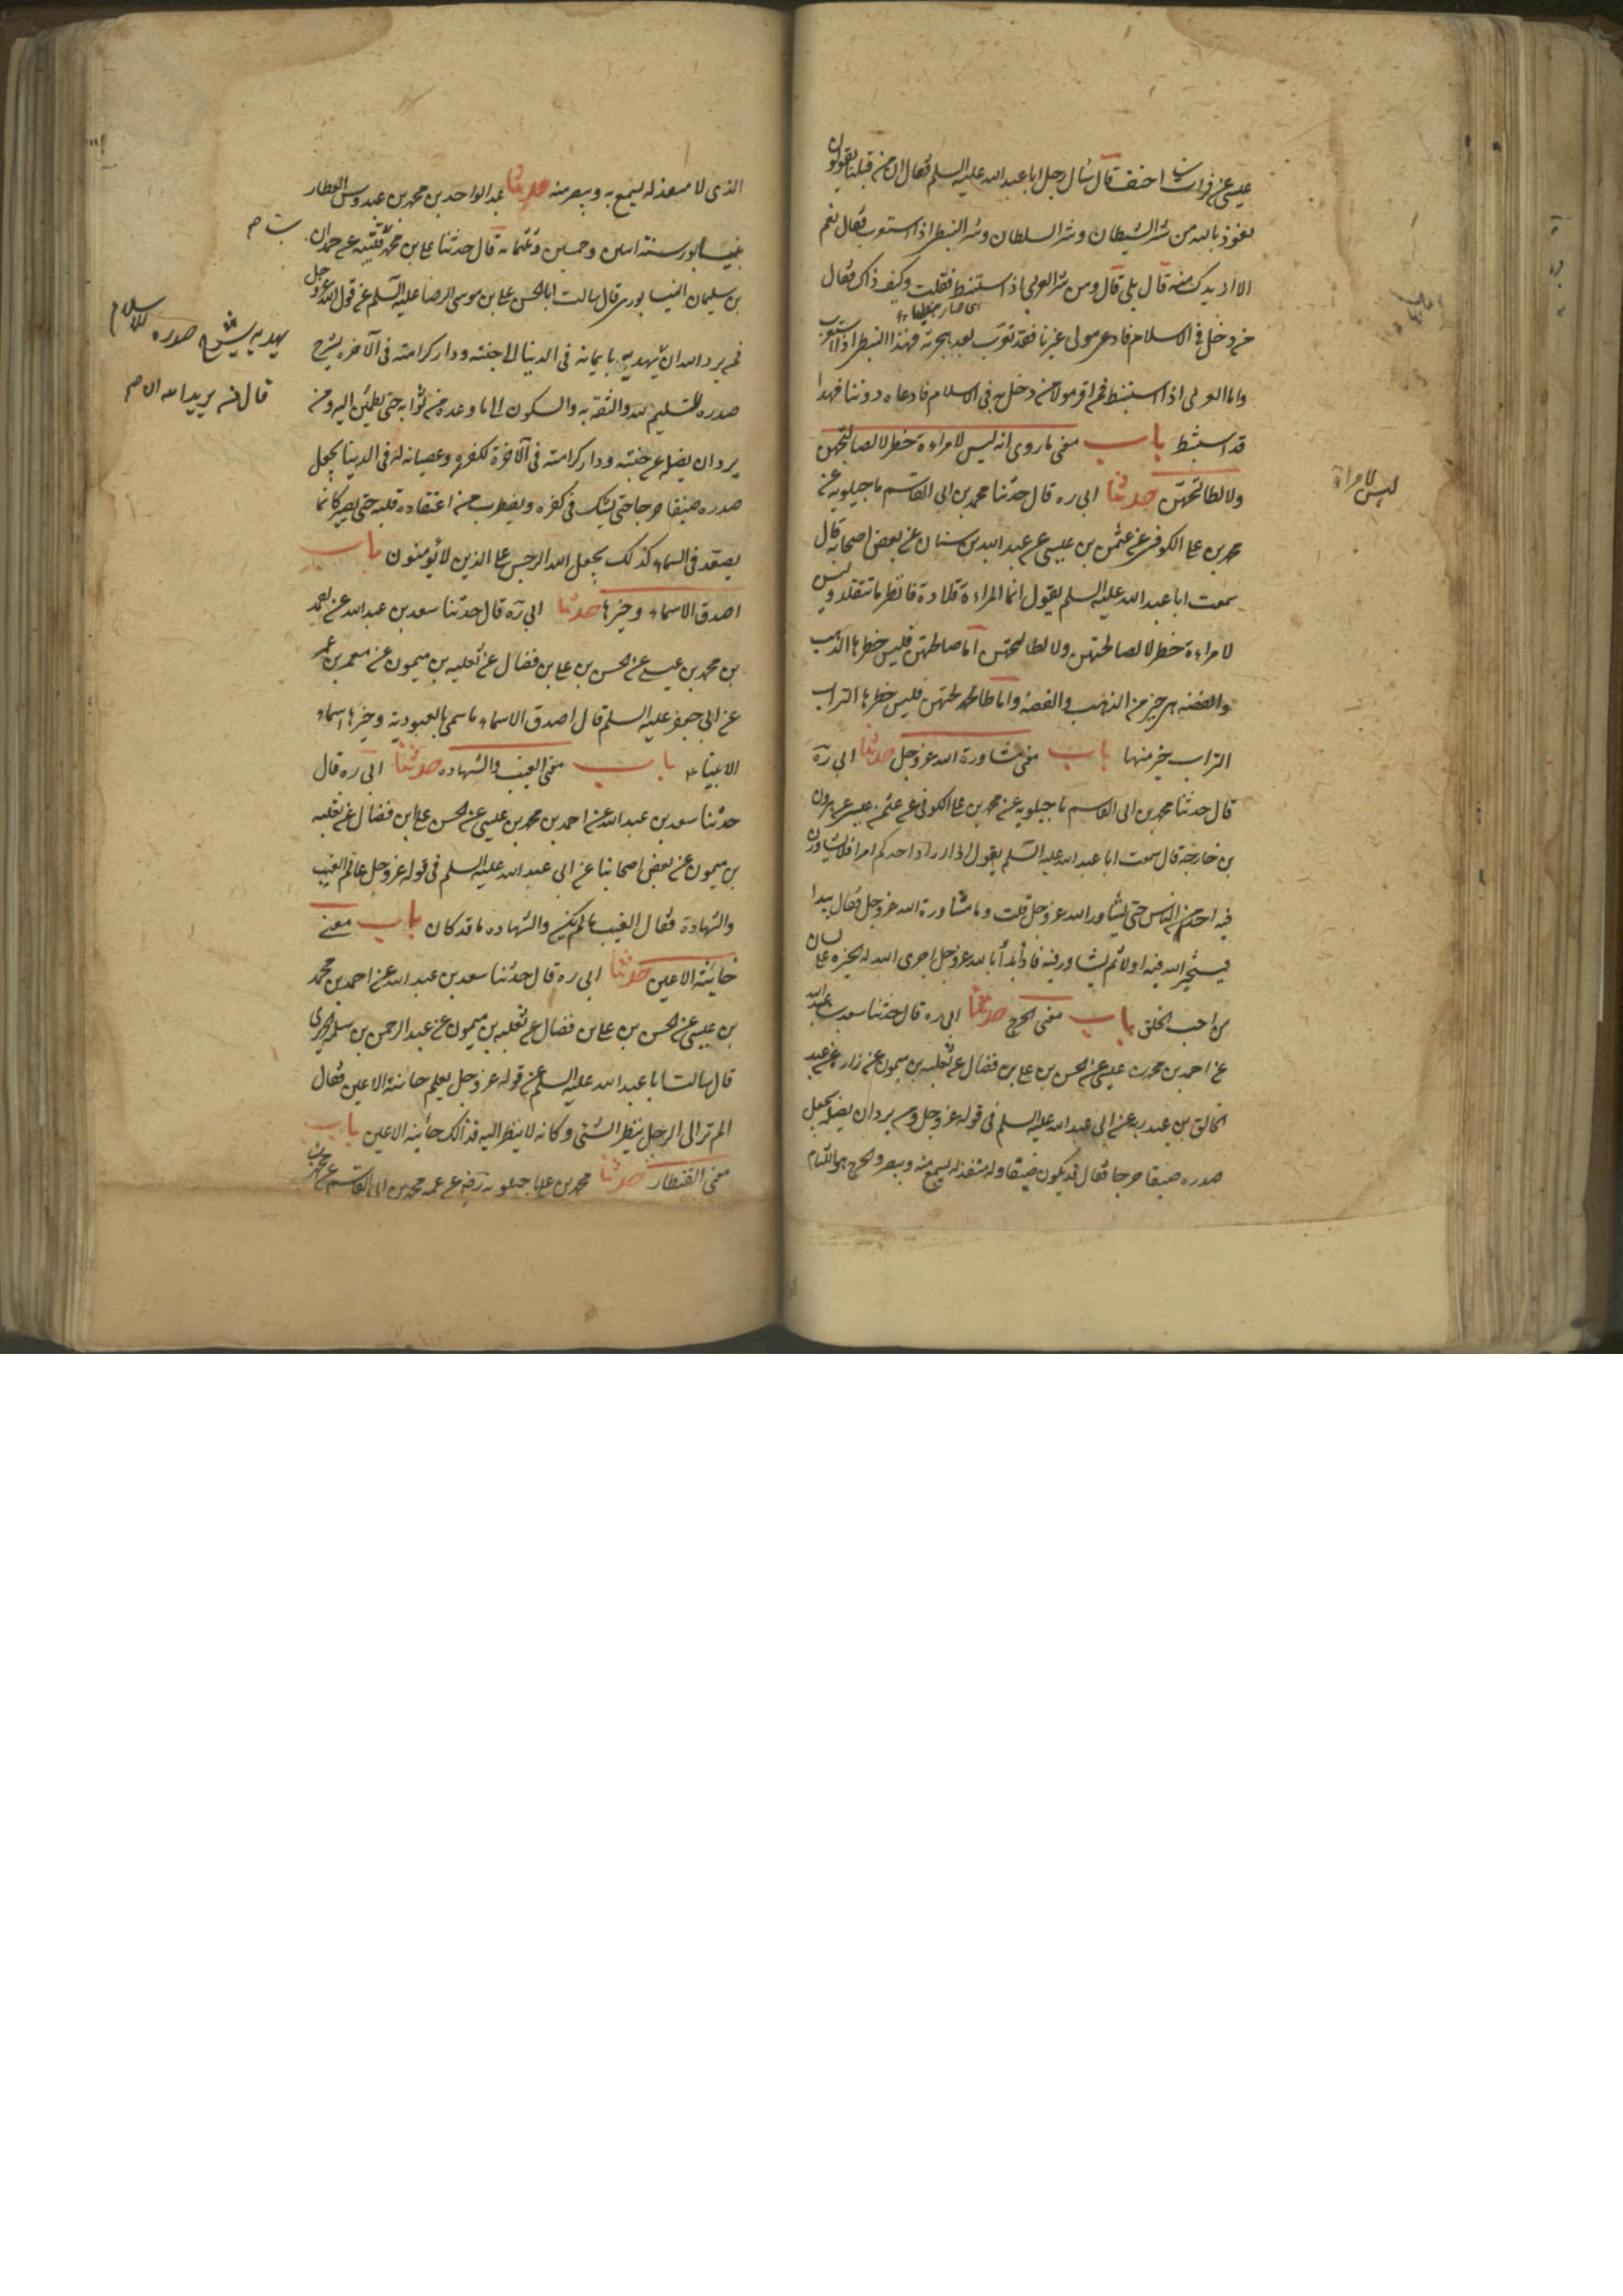 عيسى عن فرات بن احنف قال سأل رجل ابا عبد الله عليه السلم فقال ان من قبلنا يقولون
نعوذ بالله من شر الشيطان وشر السلطان وشر النبطى اذا استعرب فقال نعم
الا ازيدك منه قال بلى قال ومن شر العربى اذا استنبط فقلت وكيف ذاك فقال
اى صار نبطيا
من دخل فى الاسلام فادعى مولى غيرنا فقد تعرب بعد هجرته فهذا النبطى اذا استعرب
واما العربى اذا استنبط فمن اقر بولاء من دخل به فى الاسلام فادعاه دوننا فهذا
قد استنبط باب معنى ما روى انه ليس لامراءة خطر لا لصالحتهن
ولا لطالحتهن حدثنا ابى ره قال حدثنا محمد بن ابى القاسم ماجيلويه عن
محمد بن على الكوفى عن عثمن بن عيسى عن عبد الله بن سنان عن بعض اصحابه قال
سمعت ابا عبد الله عليه السلم يقول انما المراءة قلادة فانظر ما تتقلد وليس
لامراءة خطر لا لصالحتهن ولا لطالحتهن اما صالحتهن فليس خطرها الذهب
والفضه هى خير من الذهب والفضة واما طالحتهن فليس خطرها التراب
التراب خير منها باب معنى مشاورة الله عز وجل حدثنا ابى ره
قال حدثنا محمد بن ابى القاسم ماجيلويه عن محمد بن على الكوفى عن عثمن بن عيسى عن هرون
بن خارجة قال سمعت ابا عبد الله عليه السلم يقول اذا اراد احدكم امرا فلا يشاورن
فيه احدا من الناس حتى يشاور الله عز وجل قلت وما مشاورة الله عز وجل فقال يبدا
فيستخير الله فيه اولا ثم يشاور فيه فاذا بدأ بالله عز وجل اجرى الله له الخيره على لسان
من احب من الخلق باب معنى الحرج حدثنا ابى ره قال حدثنا سعد بن عبد الله
عن احمد بن محمد بن عيسى عن الحسن بن على بن فضال عن ثعلبه بن ميمون عن زراره عن عبد
الخالق بن عبد ربه عن ابى عبد الله عليه السلم فى قوله عز وجل ومن يرد ان يضله يجعل
صدره ضيقا حرجا فقال قد يكون ضيقا وله منفذ له يسمع منه ويبصر والحرج هو الملتام
ليس لامراة
الذى لا منفذ له يسمع به ويبصر منه حدثنا عبد الواحد بن محمد بن عبدوس العطار
بنيسابور سنة اثنين وخمسين وثلثمائة قال حدثنا على بن محمد بن قتيبه عن حمدان
بن سليمان النيسابورى قال سالت ابا الحسن على بن موسى الرضا عليه السلم عن قول الله عز وجل
فمن يرد الله ان يهديه بايمانه فى الدنيا الى جنته ودار كرامته فى الآخره يشرح
صدره للتسليم لله والثقه به والسكون الى ما وعده من ثوابه حتى يطمئن اليه ومن
يرد ان يضله عن جنته ودار كرامته فى الآخرة لكفره وعصيانه له فى الدنيا يجعل
صدره ضيقا حرجا حتى يشك فى كفره ويضطرب من اعتقاده قلبه حتى يصير كانما
يصعد فى السماء كذلك يجعل الله الرجس على الذين لا يؤمنون باب
اصدق الاسماء وخيرها حدثنا ابى ره قال حدثنا سعد بن عبد الله عن احمد
بن محمد بن عيسى عن الحسن بن على بن فضال عن ثعلبه بن ميمون عن معمر بن عمر
عن ابى جعفر عليه السلم قال اصدق الاسماء ما سمى بالعبودية وخيرها اسماء
الانبياء باب معنى الغيب والشهاده حدثنا ابى ره قال
حدثنا سعد بن عبد الله عن احمد بن محمد بن عيسى عن الحسن بن على بن فضال عن ثعلبه
بن ميمون عن بعض اصحابنا عن ابى عبد الله عليه السلم فى قوله عز وجل عالم الغيب
والشهادة فقال الغيب ما لم يكن والشهاده ما قد كان باب معنى
خائنة الاعين حدثنا ابى ره قال حدثنا سعد بن عبد الله عن احمد بن محمد
بن عيسى عن الحسن بن على بن فضال عن ثعلبه بن ميمون عن عبد الرحمن بن سلمه الحريرى
قال سالت ابا عبد الله عليه السلم عن قوله عز وجل يعلم خائنة الاعين فقال
الم تر الى الرجل ينظر الى الشئ وكانه لا ينظر اليه فذالك خائنة الاعين باب
معنى القنطار حدثنا محمد بن على ماجيلويه رضه عن عمه محمد بن ابى القاسم عن محمد بن
يهديه يشرح صدره للاسلام
قال من يريد الله الاصم